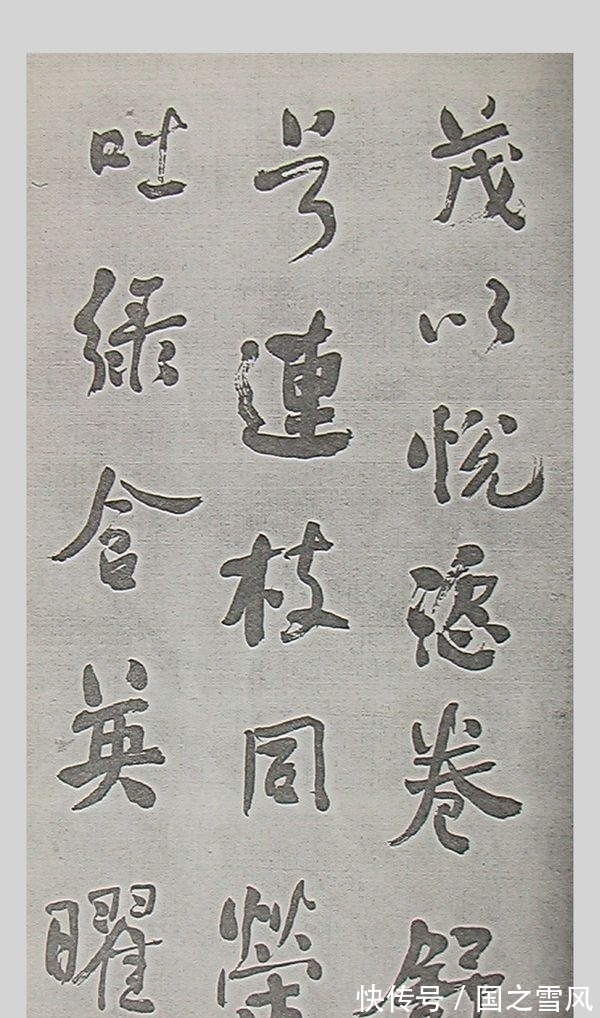 茂以悦恣卷舒
兮連枝同榮
吐緑含英曜
快传号 / 国之雪风